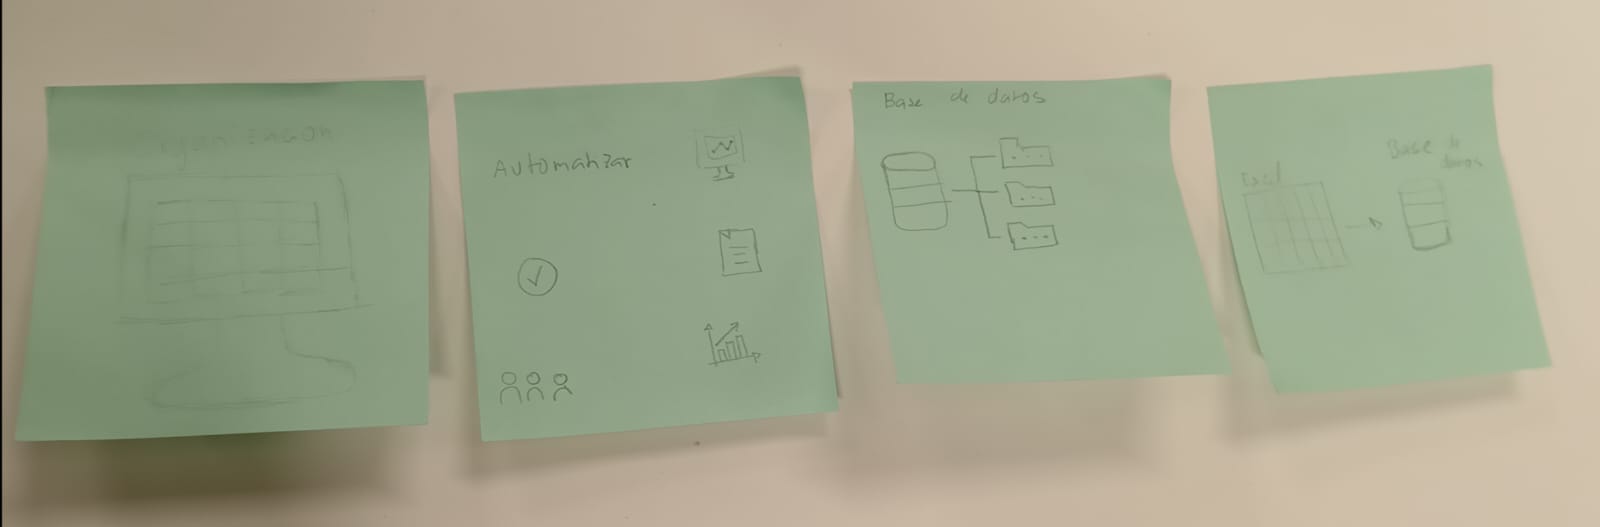 Organización
Automatizar
Base de datos
Excel
Base de
datos